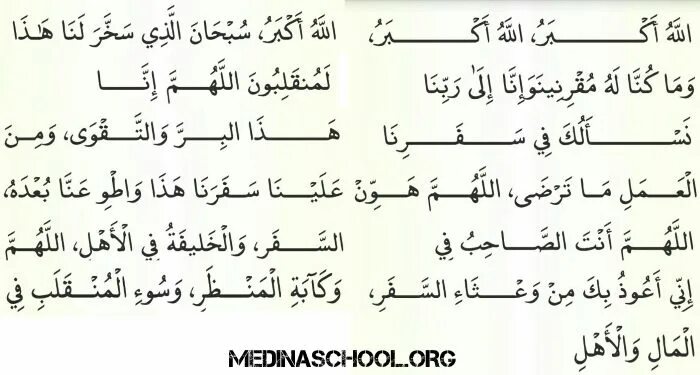 اللَّهُ أَكْبَرُ، اللَّهُ أَكْبَرُ، اللَّهُ أَكْبَرُ، سُبْحَانَ الَّذِي سَخَّرَ لَنَا هَٰذَا
وَمَا كُنَّا لَهُ مُقْرِنِينَوَإِنَّا إِلَىٰ رَبِّنَا لَمُنقَلِبُونَ اللَّهُمَّ إِنَّا
نَسْأَلُكَ فِي سَفَرِنَا هَذَا البِرَّ وَالتَّقْوَى، وَمِنَ
الْعَمَلِ مَا تَرْضَى، اللَّهُمَّ هَوِّنْ عَلَيْنَا سَفَرَنَا هَذَا وَاطْوِ عَنَّا بُعْدَهُ،
اللَّهُمَّ أَنْتَ الصَّاحِبُ فِي السَّفَرِ، وَالْخَلِيفَةُ فِي الْأَهْلِ، اللَّهُمَّ
إِنِّي أَعُوذُ بِكَ مِنْ وَعْثَاءِ السَّفَرِ، وَكَآبَةِ الْمَنْظَرِ، وَسُوءِ الْمُنْقَلَبِ فِي
الْمَالِ وَالْأَهْلِ
MEDINASCHOOL.ORG